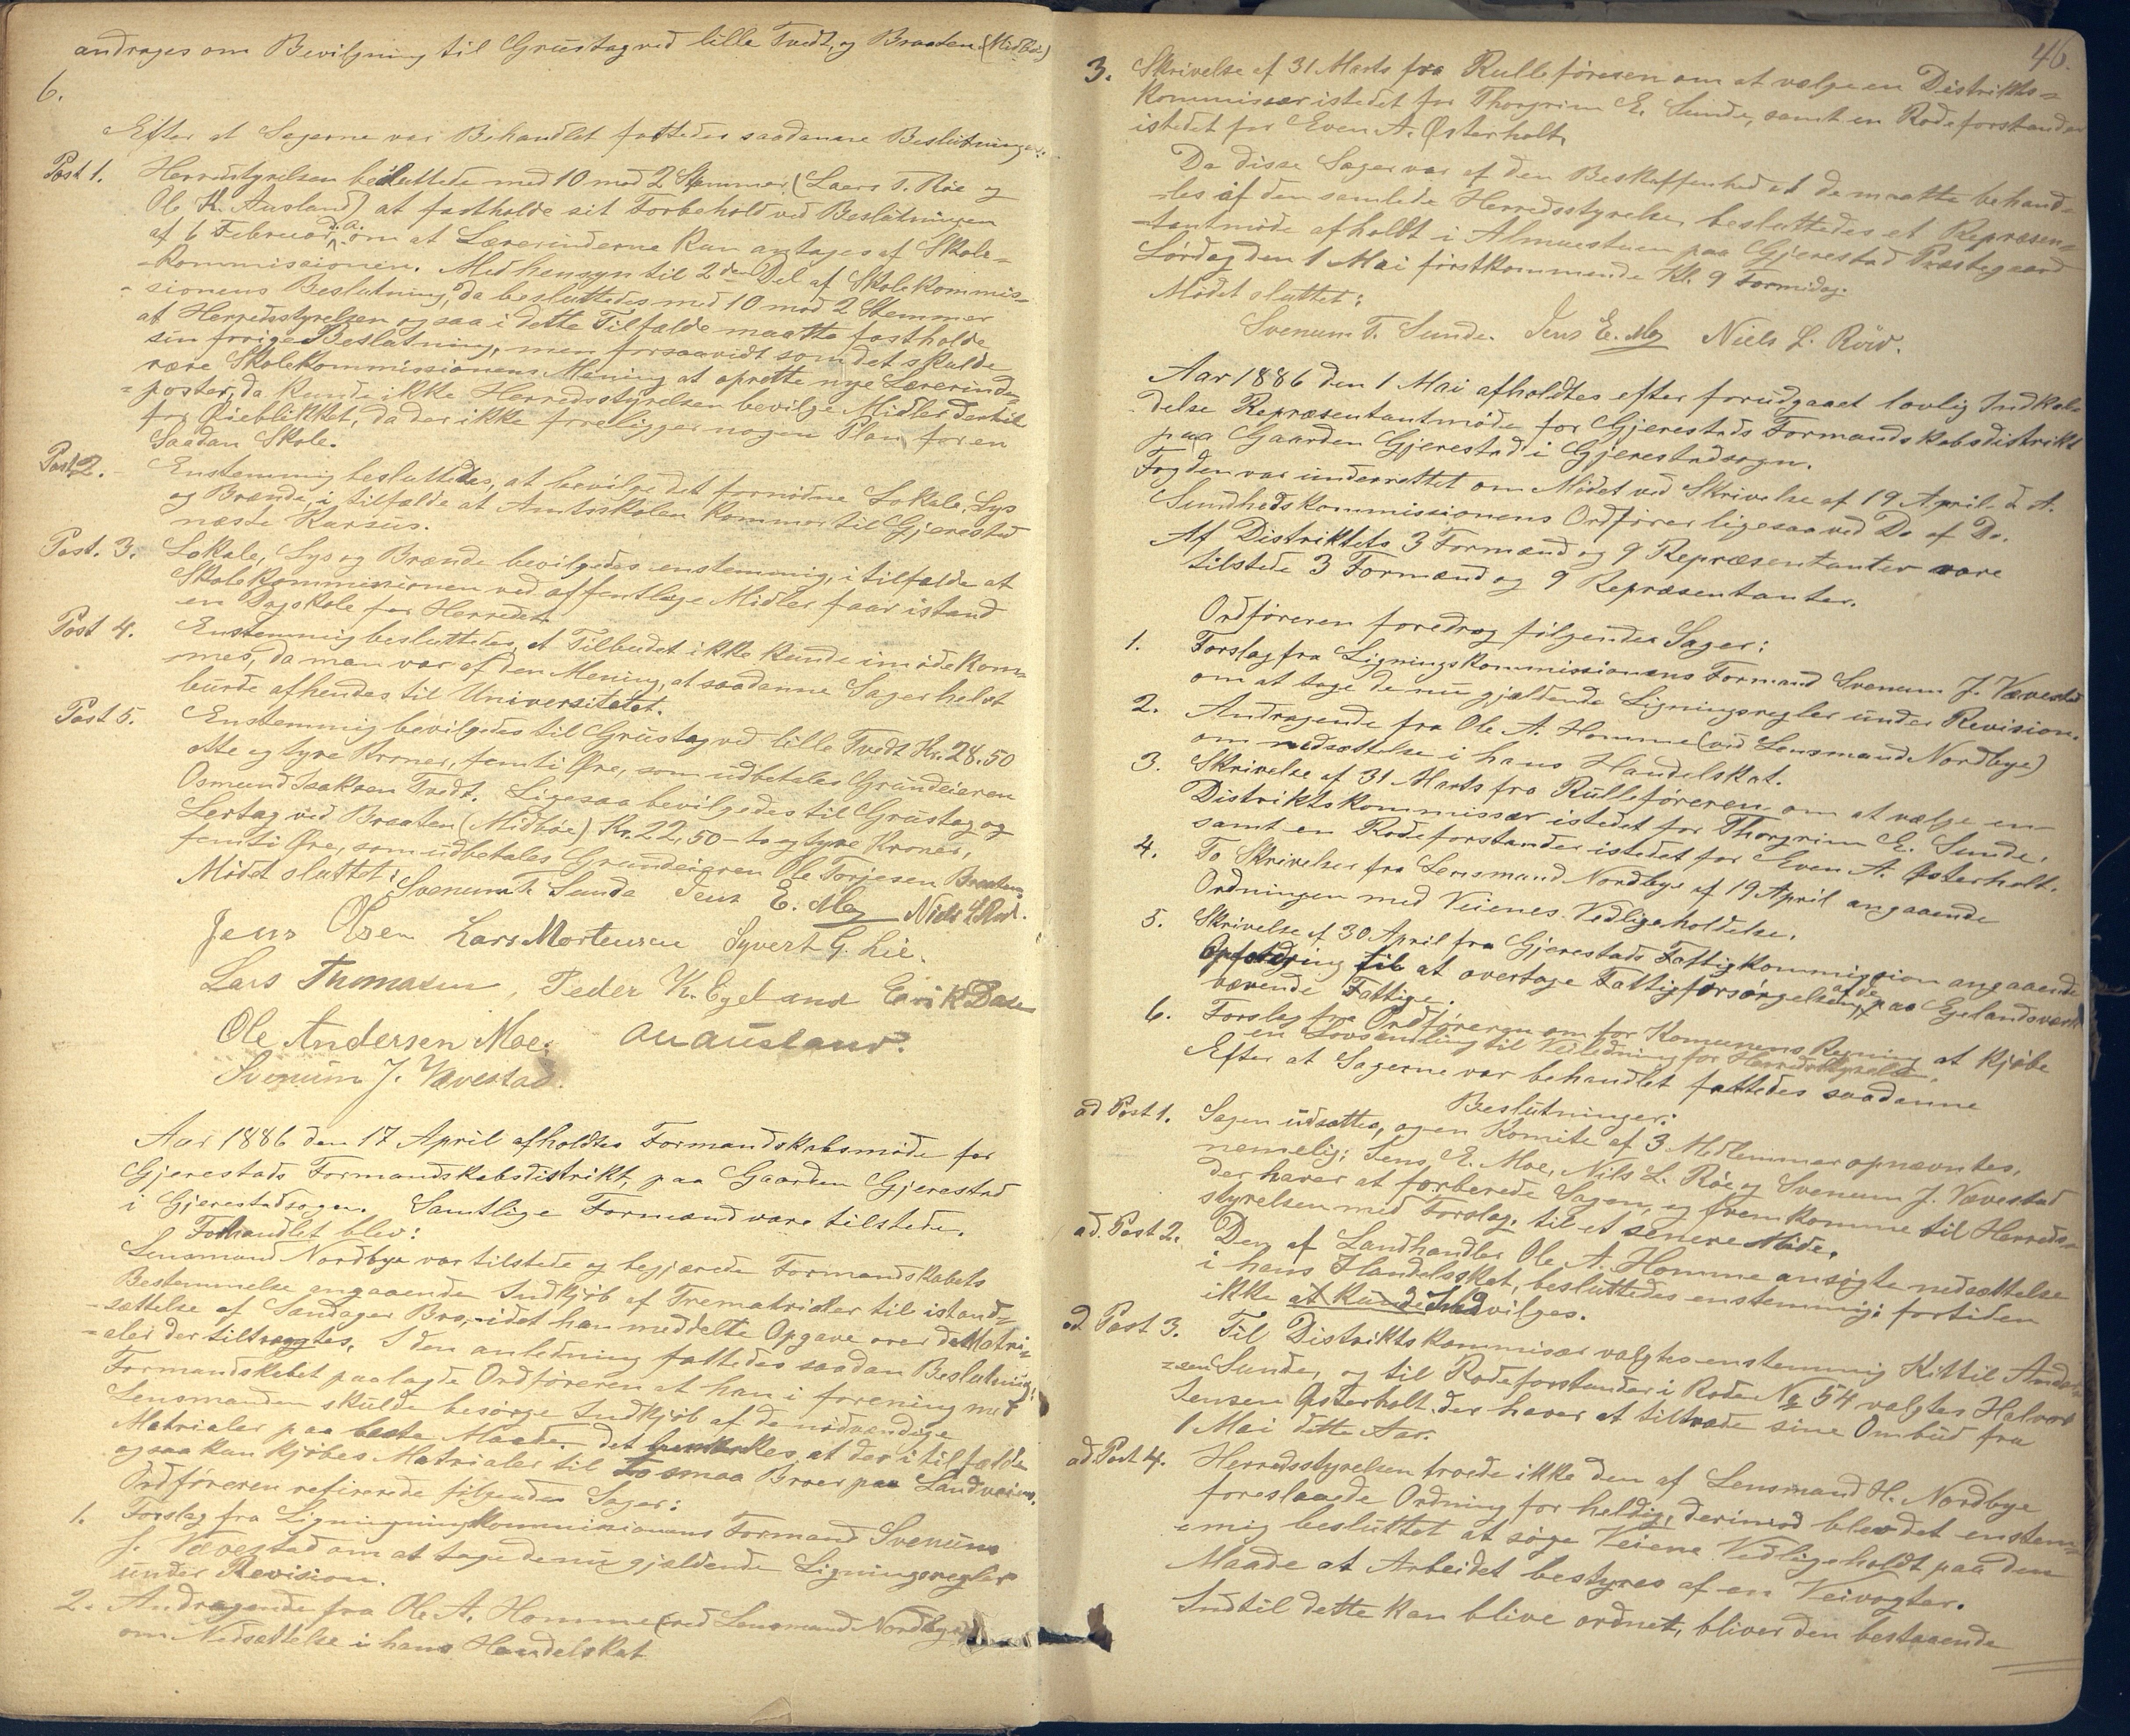 andrages om Bevilgning til Grustag ved lille Tvedt, og Braaten (Midbøe)
6.
Efter at Sagerne var Behandlet fattedes saadanne Beslutninger:
Post 1. Herredstyrelsen besluttede med 10 mod 2 Stemmer, (Laers T. Røe og
Ole K. Ausland) at fastholde sit Forbehold ved Beslutningen
af 6 Februar d. A. om at Lærerinderne kun antages af Skole-
-Kommissionen. Med hensyn til 2den Del af Skolekommis-
-sionens Beslutning, da besluttedes med 10 mod 2 Stemmer
at Herredsstyrelsen ogsaa i dette Tilfælde maatte fastholde
sin forrige Beslutning, men forsaavidt som det skulde
være Skolekommissionens Mening at oprette nye Lærerinde-
=poster, da kunde ikke Herredsstyrelsen bevilge Midler dertil
for Øieblikket, da der ikke foreligger nogen Plan for en
Saadan Skole.
Post 2. Enstemmig besluttedes, at bevilge det fornødne Lokale, Lys
og Brænde, i tilfælde at Amtsskolen kommer til Gjerestad
næste Kursus.
Post. 3. Lokale, Lys og Brænde bevilgedes enstemmig, i tilfælde at
Skolekommissionen ved offentlige Midler faar istand
en Dagskole for Herredet.
Post 4. Enstemmig besluttedes, at Tilbudet ikke kunde imødekom-
-mes, da man var af den Mening, at saadanne Sager helst
burde afhendes til Universitetet.
Post 5. Enstemmig bevilgedes til Grustag ved lille Tvedt Kr. 28.50
otte og tyve Kroner, femti Øre, som udbetales Grundeieren
Osmund Isaksen Tvedt. Ligesaa bevilgedes til Grustag og
Lertag ved Braaten (Midbøe) Kr. 22,50 - to og tyve Kroner,
femti Øre, som udbetales Grundeieren Ole Torjesen Braaten
Mødet sluttet:
Svenum T. Sunde Jens E. Moe Niels L Røed.
Jens Olsen Lars Mortensen Syvert G. Lie.
Lars Thomasen, Peder K. Egeland Eirik Dale
Ole Andersen Moe. OK Ausland.
Svenum J. Vævestad.
Aar 1886 den 17 April afholdtes Formandskabsmøde for
Gjerestads Formandskabsdistrikt, paa Gaarden Gjerestad
i Gjerestadsogn. Samtlige Formænd vare tilstede.
Forhandlet blev:
Lensmand Nordbye var tilstede og begjærede Formandskabets
Bestemmelse angaaende Indkjøb af Trematrialer til istand-
-sættelse af Sandager Bro, idet han meddelte Opgave over de Matri-
-aler der tiltrængtes. I den anledning fattedes saadan Beslutning:
Formandskabet paalagde Ordføreren at han i forening med
Lensmanden skulde besørge Indkjøb af de nødvendige
Matrialer paa beste Maade. Det bemærkes, at der i tilfælde
ogsaa kan kjøbes Matrialer til to smaa Broer paa Landveien.
Ordføreren refirerede følgende Sager:
1. Forslag fra Ligningningkommissionens Formand Svenum
J. Vævestad om at tage de nu gjældende Ligningsregler
under Revision.
2. Andragende fra Ole A. Homme (ved Lensmand Nordbye)
om Nedsættelse i hans Handelskat
46.
3. Skrivelse af 31 Marts fra Rulleføreren om at vælge en Distrikts=
Kommissær istedet for Thorgrim E. Sunde, samt en Rodeforstander
istedet for Even A. Østerholt.
Da disse Sager var af den Beskaffenhed at de maatte behand-
-les af den samlede Herredsstyrelse, besluttedes et Repræsen-
-tantmøde afholdt i Almuestuen paa Gjerestad Præstegaard
Lørdag den 1 Mai førstkommende Kl. 9 Formidag.
Mødet sluttet:
Svenum T. Sunde. Jens E. Moe Niels L. Röed.
Aar 1886 den 1 Mai afholdtes efter forudgaaet lovlig Indkal-
delse Repræsentantmøde for Gjerestads Formandskabsdistrikt
paa Gaarden Gjerestad i Gjerestadsogn.
Fogden var underrettet om Mødet ved Skrivelse af 19 April d. A.
Sundhedskommissionens Ordfører ligesaa ved Do af Do.
Af Distriktets 3 Formænd og 9 Repræsentanter vare
tilstede 3 Formænd og 9 Repræsentanter.
Ordføreren foredrog følgende Sager:
1. Forslag fra Ligningskommissionens Formand Svenum J. Vævestad
om at tage de nu gjældende Ligningsregler under Revision.
2. Andragende fra Ole A. Homme (ved Lensmand Nordbye)
om nedsættelse i hans Handelskat.
3. Skrivelse af 31 Marts fra Rulleføreren om at vælge en
Distriktskommissær istedet for Thorgrim E. Sunde,
samt en Rodeforstander istedet for Even A. Østerholt.
4. To Skrivelser fra Lensmand Nordbye af 19 April angaaende
Ordningen med Veienes Vedligeholdelse.
5. Skrivelse af 30 April fra Gjerestads Fattigkommission angaaende
Opfordring til at overtage Fattigforsørgelsen af de paa Egelandsværk
værende Fattige.
6. Forslag fra Ordføreren om for Komunens Regning at kjøbe
en Lovsamling til Veiledning for Herredsstyrelsen.
Efter at Sagerne var behandlet fattedes saadanne
Beslutninger:
ad Post 1. Sagen udsattes, og en Komite af 3 Medlemmer opnævntes,
nemelig: Jens E. Moe, Nils L. Røe og Svenum J. Vævestad
der haver at forberede Sagen, og fremkomme til Herreds-
styrelsen med Forslag, til et senere Møde.
ad. Post 2. Den af Landhandler Ole A. Homme ansøgte nedsættelse
i hans Handelsskat, besluttedes enstemmig: fortiden
ikke at kunde Indvilges.
ad Post 3. Til Distriktskommisær valgtes enstemmig Kittil Ander-
=sen Sunde, og til Rodeforstander i Roden No 54 valgtes Halvor
Jensen Østerholt. der haver at tiltræde sine Ombud fra
1 Mai dette Aar.
ad Post 4. Herredsstyrelsen troede ikke den af Lensmand H. Nordbye
foreslaaede Ordning for heldig, derimod blev det enstem-
-mig besluttet at søge Veiene Vedligeholdt paa den
Maade at Arbeidet bestyres af en Veivogter.
Indtil dette kan blive ordnet, bliver den bestaaende